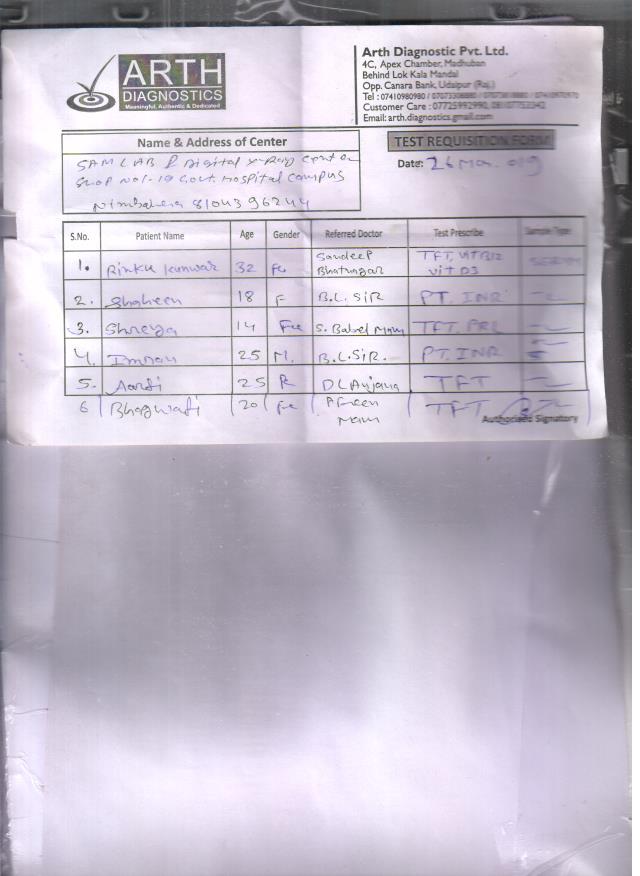 ARTH
DIAGNOSTICS
Meaningful, Authentic & Dedicated
Arth Diagnostic Pvt. Ltd.
4C, Apex Chamber, Madhuban
Behind Lok Kala Mandal
Opp. Canara Bank, Udaipur (Raj.)
Tel : 07410980980
Customer Care : 07725992990,
Email: arth.diagnostics.gmail.com
Name & Address of Center
TEST REQUISITION FORM
SAM LAB & Digital x-Ray center
Shop No 1-19 Govt. Hospital Campus
Nimbahera 8104396244
Date: 26 Mar. 019
S.No. Patient Name Age Gender Referred Doctor Test Prescribe Sample Type
1. Rinku kunwar 32 Fe Sandeep Bhatnagar TFT, VIT B12 Vit D3 SERUM
2. Shaheen 18 F B.L. SIR PT. INR
3. Shreya 14 Fe S. Babel Mam TFT. PRL
4. Imran 25 M. B.L. SIR. PT. INR
5. Aarti 25 F DL Anjana TFT
6 Bhagwati 20 Fe Afreen Mam TFT
Authorised Signatory